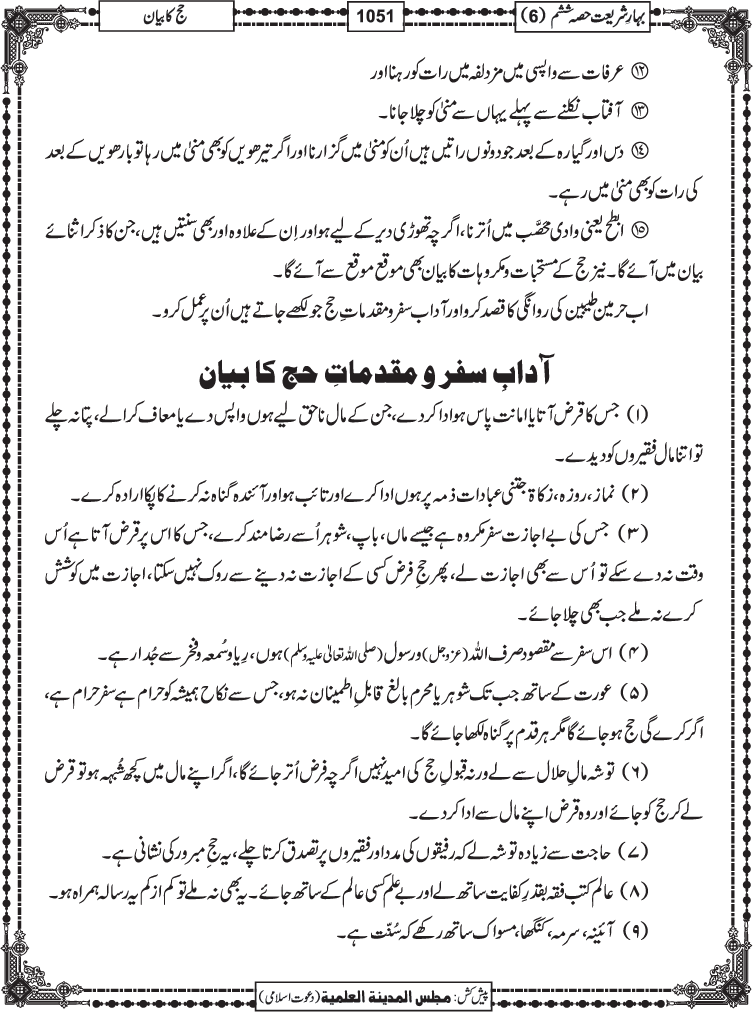 بہارِ شریعت حصہ ششم (6)
1051
حج کا بیان
⑫ عرفات سے واپسی میں مزدلفہ میں رات کو رہنا اور
⑬ آفتاب نکلنے سے پہلے یہاں سے منیٰ کو چلا جانا۔
⑭ دس اور گیارہ کے بعد جو دونوں راتیں ہیں اُن کو منیٰ میں گزارنا اور اگر تیرھویں کو بھی منیٰ میں رہا تو بارھویں کے بعد
کی رات کو بھی منیٰ میں رہے۔
⑮ ابطح یعنی وادی محصَّب میں اُترنا، اگرچہ تھوڑی دیر کے لیے ہو اور اِن کے علاوہ اور بھی سنتیں ہیں، جن کا ذکر اثنائے
بیان میں آئے گا۔ نیز حج کے مستحبات و مکروہات کا بیان بھی موقع موقع سے آئے گا۔
اب حرمین طیبین کی روانگی کا قصد کرو اور آداب سفر و مقدماتِ حج جو لکھے جاتے ہیں اُن پر عمل کرو۔
آدابِ سفر و مقدماتِ حج کا بیان
(۱) جس کا قرض آتا یا امانت پاس ہو ادا کردے، جن کے مال ناحق لیے ہوں واپس دے یا معاف کرالے، پتا نہ چلے
تو اتنا مال فقیروں کو دیدے۔
(۲) نماز، روزہ، زکاۃ جتنی عبادات ذمہ پر ہوں ادا کرے اور تائب ہو اور آئندہ گناہ نہ کرنے کا پکا ارادہ کرے۔
(۳) جس کی بے اجازت سفر مکروہ ہے جیسے ماں، باپ، شوہر اُسے رضا مند کرے، جس کا اس پر قرض آتا ہے اُس
وقت نہ دے سکے تو اُس سے بھی اجازت لے، پھر حجِ فرض کسی کے اجازت نہ دینے سے روک نہیں سکتا، اجازت میں کوشش
کرے نہ ملے جب بھی چلا جائے۔
(۴) اس سفر سے مقصود صرف اللہ (عزوجل) و رسول (صلی اللہ تعالیٰ علیہ وسلم) ہوں، رِیا و سُمعہ و فخر سے جُدا رہے۔
(۵) عورت کے ساتھ جب تک شوہر یا محرم بالغ قابلِ اطمینان نہ ہو، جس سے نکاح ہمیشہ کو حرام ہے سفر حرام ہے،
اگر کرے گی حج ہو جائے گا مگر ہر قدم پر گناہ لکھا جائے گا۔
(۶) توشہ مالِ حلال سے لے ورنہ قبولِ حج کی امید نہیں اگرچہ فرض اُتر جائے گا، اگر اپنے مال میں کچھ شُبہہ ہو تو قرض
لے کر حج کو جائے اور وہ قرض اپنے مال سے ادا کردے۔
(۷) حاجت سے زیادہ توشہ لے کہ رفیقوں کی مدد اور فقیروں پر تصدق کرتا چلے، یہ حجِ مبرور کی نشانی ہے۔
(۸) عالم کتب فقہ بقدرِ کفایت ساتھ لے اور بے علم کسی عالم کے ساتھ جائے۔ یہ بھی نہ ملے تو کم از کم یہ رسالہ ہمراہ ہو۔
(۹) آئینہ، سرمہ، کنگھا، مسواک ساتھ رکھے کہ سُنّت ہے۔
پیش کش: مجلس المدینۃ العلمیۃ (دعوت اسلامی)